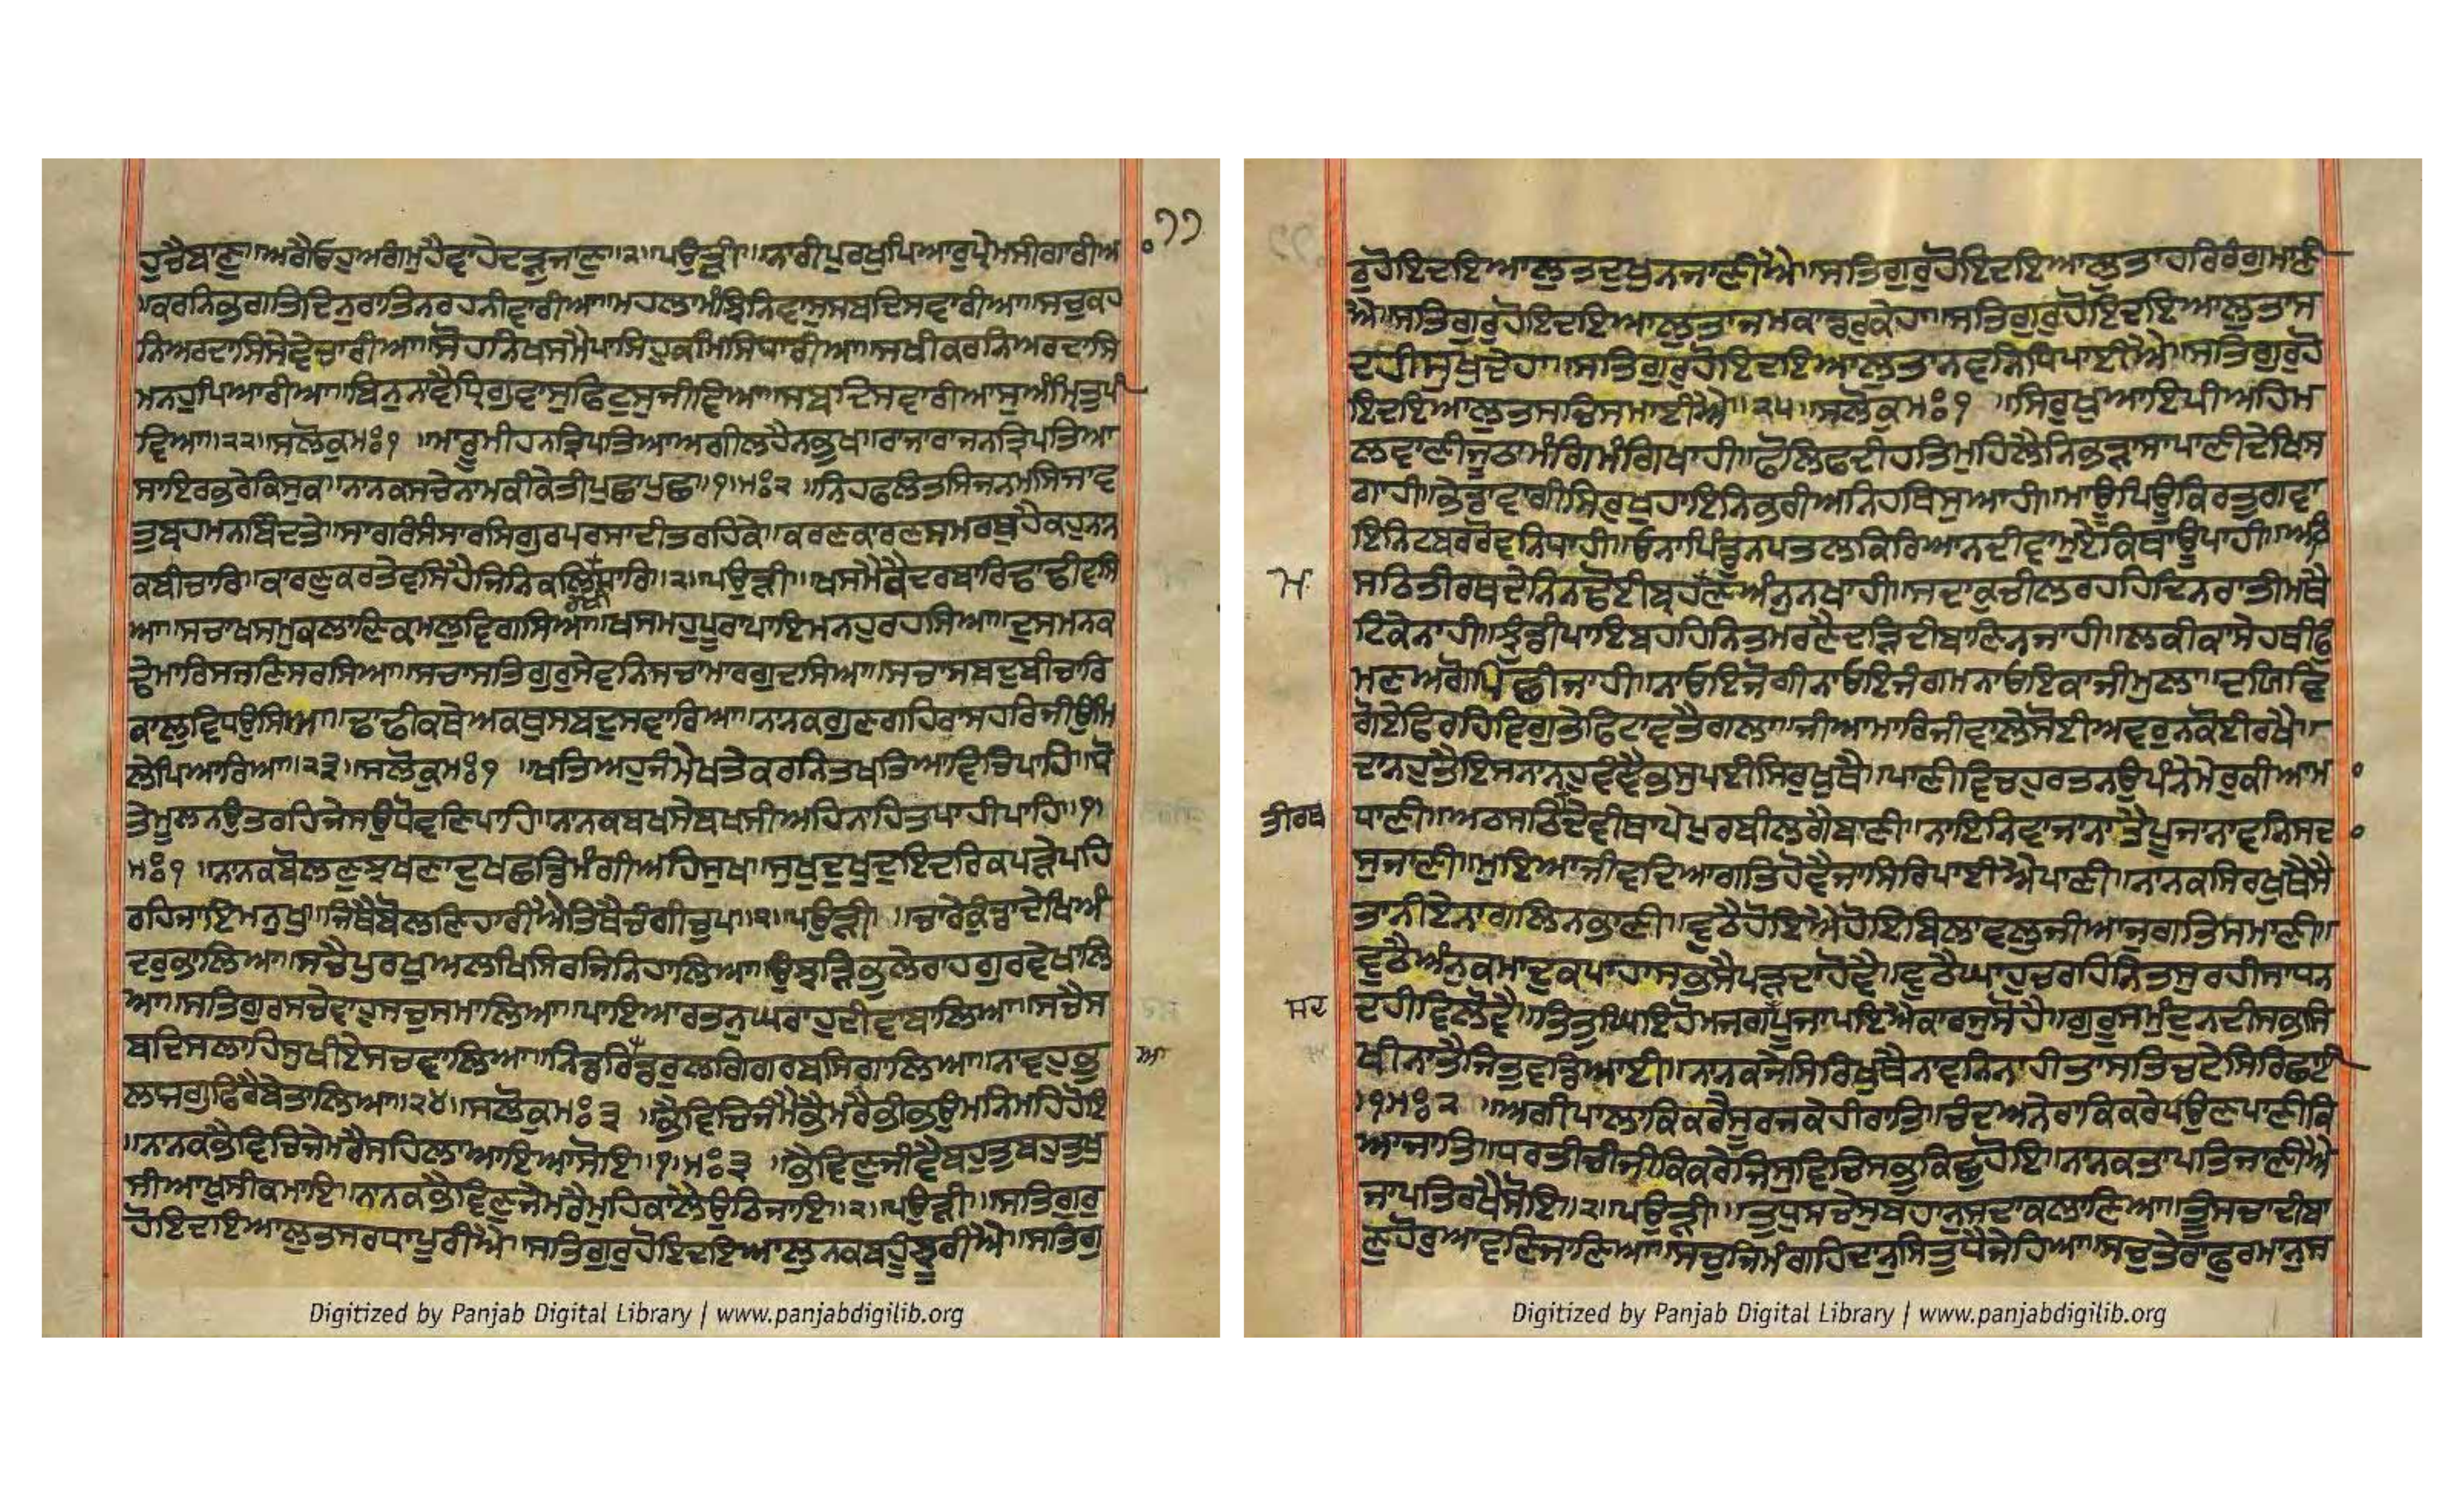 ੧੧
ਹੁਚੈਬਾਣੁ॥ਅਰੈਓਹੁਅਗਮੁਹੈਵਾਹੇਦੜੁਜਾਣੁ॥੨॥ਪਉੜੀ॥ਨਾਰੀਪੁਰਖੁਪਿਆਰੁਪ੍ਰੇਮਸੀਗਾਰੀਆ
॥ਕਰਨਿਭਗਤਿਦਿਨੁਰਾਤਿਨਰਹਨੀਵਾਰੀਆ॥ਮਹਲਾਮੰਝਿਨਿਵਾਸੁਸਬਦਿਸਵਾਰੀਆ॥ਸਚੁਕਹ
ਨਿਅਰਦਾਸਿਸੇਵੇਚਾਰੀਆ॥ਸੋਹਨਿਖਸਮੈਪਾਸਿਹੁਕਮਿਸਿਧਾਰੀਆ॥ਸਖੀਕਰਨਿਅਰਦਾਸਿ
ਮਨਹੁਪਿਆਰੀਆ॥ਬਿਨੁਨਵੈਧ੍ਰਿਗੁਵਾਸੁਫਿਟੁਸੁਜੀਵਿਆ॥ਸਬਦਿਸਵਾਰੀਆਸੁਅੰਮ੍ਰਿਤੁਪੀ
ਵਿਆ॥੨੨॥ਸਲੋਕੁਮਃ੧॥ਮਾਰੂਮੀਹਨਤ੍ਰਿਪਤਿਆਅਗੀਲਹੈਨਭੁਖ॥ਰਾਜਾਰਾਜਨਤ੍ਰਿਪਤਿਆ
ਸਾਇਰਭਰੇਕਿਸੁਕ॥ਨਾਨਕਸਚੇਨਾਮਕੀਕੇਤੀਪੁਛਾਪੁਛ॥੧॥ਮਃ੨॥ਨਿਹਫਲੰਤਸਿਜਨਮਸਿਜਾਵ
ਤੁਬ੍ਰਹਮਨਬਿੰਦਤੇ॥ਸਾਗਰੰਸੰਸਾਰਸਿਗੁਰਪਰਸਾਦੀਤਰਹਿਕੇ॥ਕਰਣਕਾਰਣਸਮਰਥੁਹੈਕਹੁਨਾਨ
ਕਬੀਚਾਰਿ॥ਕਾਰਣੁਕਰਤੇਵਸਿਹੈਜਿਨਿਕਲਧਾਰਿ॥੨॥ਪਉੜੀ॥ਖਸਮੈਕੈਦਰਬਾਰਿਢਾਢੀਵਸਿ
ਆ॥ਸਚਾਖਸਮੁਕਲਾਣਿਕਮਲੁਵਿਗਸਿਆ॥ਖਸਮਹੁਪੂਰਾਪਾਇਮਨਹੁਰਹਸਿਆ॥ਦੁਸਮਨਕ
ਢੇਮਾਰਿਸਜਣਿਸਰਸਿਆ॥ਸਚਾਸਤਿਗੁਰੁਸੇਵਨਿਸਚਾਮਾਰਗੁਦਸਿਆ॥ਸਚਾਸਬਦੁਬੀਚਾਰਿ
ਕਾਲੁਵਿਧਉਸਿਆ॥ਢਾਢੀਕਥੇਅਕਥੁਸਬਦੁਸਵਾਰਿਆ॥ਨਾਨਕਗੁਣਗਹਿਰਾਸਹਰਿਜੀਉਮਿ
ਲੇਪਿਆਰਿਆ॥੨੩॥ਸਲੋਕੁਮਃ੧॥ਖਤਿਅਹੁਜੰਮੇਖਤੇਕਰਨਿਤਖਤਿਆਵਿਚਿਪਾਹਿ॥ਧੋ
ਤੇਮੂਲਨਉਤਰਹਿਜੇਸਉਧੋਵਣਿਪਾਹਿ॥ਨਾਨਕਬਖਸੇਬਖਸੀਅਹਿਨਾਹਿਤਪਾਹੀਪਾਹਿ॥੧॥
ਮਃ੧॥ਨਾਨਕਬੋਲਣੁਝਖਣਾਦੁਖਛਡਿਮੰਗੀਅਹਿਸੁਖ॥ਸੁਖੁਦੁਖੁਦੁਇਦਰਿਕਪੜੇਪਹਿ
ਰਹਿਜਾਇਮਨੁਖ॥ਜਿਥੈਬੋਲਣਿਹਾਰੀਐਤਿਥੈਚੰਗੀਚੁਪ॥੨॥ਪਉੜੀ॥ਚਾਰੇਕੁੰਡਾਦੇਖਿਅੰ
ਦਰੁਭਾਲਿਆ॥ਸਚੈਪੁਰਖੁਅਲਖਿਸਿਰਜਿਨਿਹਾਲਿਆ॥ਉਝੜਿਭੁਲੇਰਾਹਗੁਰਵੇਖਾਲਿ
ਆ॥ਸਤਿਗੁਰਸਚੇਵਾਹੁਸਚੁਸਮਾਲਿਆ॥ਪਾਇਆਰਤਨੁਘਰਾਹੁਦੀਵਾਬਾਲਿਆ॥ਸਚੈਸ
ਬਦਿਸਲਾਹਿਸੁਖੀਏਸਚਵਾਲਿਆ॥ਨਿਡਰਿਡਰੁਲਗਿਗਰਬਸਿਗਾਲਿਆ॥ਨਾਵਹੁਭੁ
ਆ
ਲਾਜਗੁਫਿਰੈਬੇਤਾਲਿਆ॥੨੪॥ਸਲੋਕੁਮਃ੩॥ਭੈਵਿਚਿਜੰਮੈਭੈਮਰੈਭੀਭਉਮਨਿਮਹਿਹੋਇ
॥ਨਾਨਕਭੈਵਿਚਿਜੇਮਰੈਸਹਿਲਾਆਇਆਸੋਇ॥੧॥ਮਃ੩॥ਭੈਵਿਣੁਜੀਵੈਬਹੁਤੁਬਹੁਤੁਖੁ
ਸੀਆਖੁਸੀਕਮਾਇ॥ਨਾਨਕਭੈਵਿਣੁਜੇਮਰੈਮੁਹਿਕਾਲੈਉਠਿਜਾਇ॥੨॥ਪਉੜੀ॥ਸਤਿਗੁਰੁ
ਹੋਇਦਇਆਲੁਤਸਰਧਾਪੂਰੀਐ॥ਸਤਿਗੁਰੁਹੋਇਦਇਆਲੁਨਕਬਹੂੰਝੂਰੀਐ॥ਸਤਿਗੁ
ਰੁਹੋਇਦਇਆਲੁਤਦੁਖੁਨਜਾਣੀਐ॥ਸਤਿਗੁਰੁਹੋਇਦਇਆਲੁਤਾਹਰਿਰੰਗੁਮਾਣੀ
ਐ॥ਸਤਿਗੁਰੁਹੋਇਦਇਆਲੁਤਾਜਮਕਾਡਰੁਕੇਹਾ॥ਸਤਿਗੁਰੁਹੋਇਦਇਆਲੁਤਾਸ
ਦਹੀਸੁਖੁਦੇਹਾ॥ਸਤਿਗੁਰੁਹੋਇਦਇਆਲੁਤਾਨਵਨਿਧਿਪਾਈਐ॥ਸਤਿਗੁਰੁਹੋ
ਇਦਇਆਲੁਤਸਚਿਸਮਾਈਐ॥੨੫॥ਸਲੋਕੁਮਃ੧॥ਸਿਰੁਖੁਆਇਪੀਅਹਿਮ
ਲਵਾਣੀਜੂਠਾਮੰਗਿਮੰਗਿਖਾਹੀ॥ਫੋਲਿਫਦੀਹਤਿਮੁਹਿਲੈਨਿਭੜਾਸਾਪਾਣੀਦੇਖਿਸ
ਗਾਹੀ॥ਭੇਡਾਵਾਗੀਸਿਰੁਖੁਹਾਇਨਿਭਰੀਅਨਿਹਥਿਸੁਆਹੀ॥ਮਾਊਪੀਊਕਿਰਤੁਗਵਾ
ਇਨਿਟਬਰਰੋਵਨਿਧਾਹੀ॥ਓਨਾਪਿੰਡੁਨਪਤਲਕਿਰਿਆਨਦੀਵਾਮੁਏਕਿਥਾਊਪਾਹੀ॥ਅਠਿ
ਸਠਿਤੀਰਥਦੇਨਿਨਢੋਈਬ੍ਰਹਮਣਅੰਨੁਨਖਾਹੀ॥ਸਦਾਕੁਚੀਲਰਹਹਿਦਿਨਰਾਤੀਮਥੈ
ਮ
ਟਿਕੇਨਾਹੀ॥ਝੁੰਡੀਪਾਇਬਹਹਿਨਿਤਮਰਣੈਦੜਿਦੀਬਾਣਿਨਜਾਹੀ॥ਲਕੀਕਾਸੇਹਥੀਫੁੰ
ਮਣਅਗੋਪਿਛੀਜਾਹੀ॥ਨਾਓਇਜੋਗੀਨਾਓਇਜੰਗਮਨਾਓਇਕਾਜੀਮੁਲਾ॥ਦਯਿਵਿ
ਗੋਏਫਿਰਹਿਵਿਗੁਤੇਫਿਟਾਵਤੈਗਲਾ॥ਜੀਆਮਾਰਿਜੀਵਾਲੇਸੋਈਅਵਰੁਨਕੋਈਰਖੈ॥
ਦਾਨਹੁਤੈਇਸਨਾਨਹੁਵੰਞੈਭਸੁਪਈਸਿਰੁਖੁਥੈ॥ਪਾਣੀਵਿਚਹੁਰਤਨਉਪੰਨੇਮੇਰੁਕੀਆਮਾ
ਧਾਣੀ॥ਅਠਸਠਿਦੇਵੀਥਾਪੇਪੁਰਬੀਲਗੈਬਾਣੀ॥ਨਾਇਨਿਵਾਜਨਾਤੈਪੂਜਨਾਵਨਿਸਦ
ਤੀਰਥ
ਸੁਜਾਣੀ॥ਮੁਇਆਜੀਵਦਿਆਗਤਿਹੋਵੈਜਾਸਿਰਿਪਾਈਐਪਾਣੀ॥ਨਾਨਕਸਿਰਖੁਥੈਸੈ
ਤਾਨੀਏਨਾਗਲਿਨਭਾਣੀ॥ਵੁਠੈਹੋਇਐਹੋਇਬਿਲਾਵਲੁਜੀਆਜੁਗਤਿਸਮਾਣੀ॥
ਵੁਠੈਅੰਨੁਕਮਾਦੁਕਪਾਹਾਸਭਸੈਪੜਦਾਹੋਵੈ॥ਵੁਠੈਘਾਹੁਚਰਹਿਨਿਤਸੁਰਹੀਸਾਧਨ
ਦਹੀਵਿਲੋਵੈ॥ਤਿਤੁਘਿਇਹੋਮਜਗਪੂਜਾਪਇਐਕਾਰਜੁਸੋਹੈ॥ਗੁਰੂਸਮੁੰਦੁਨਦੀਸਭਸਿ
ਸਦ
ਖੀਨਾਤੈਜਿਤੁਵਡਿਆਈ॥ਨਾਨਕਜੇਸਿਰਿਖੁਥੈਨਾਵਨਿਨਾਹੀਤਾਸਤਿਚਟੇਸਿਰਿਛਾਈ
॥੧॥ਮਃ੨॥ਅਗੀਪਾਲਾਕਿਕਰੈਸੂਰਜਕੇਹੀਰਾਤਿ॥ਚੰਦਅਨੇਰਾਕਿਕਰੇਪਉਣਪਾਣੀਕਿ
ਆਜਾਤਿ॥ਧਰਤੀਚੀਜੀਕਿਕਰੇਜਿਸੁਵਿਚਿਸਭੁਕਿਛੁਹੋਇ॥ਨਾਨਕਤਾਪਤਿਜਾਣੀਐ
ਜਾਪਤਿਰਖੈਸੋਇ॥੨॥ਪਉੜੀ॥ਤੁਧੁਸਚੇਸੁਬਹਾਨੁਸਦਾਕਲਾਣਿਆ॥ਤੂਸਚਾਦੀਬਾ
ਣੁਹੋਰੁਆਵਣਿਜਾਣਿਆ॥ਸਚੁਜਿਮੰਗਹਿਦਾਨੁਸਿਤੁਧੈਜੇਹਿਆ॥ਸਚੁਤੇਰਾਫੁਰਮਾਨੁਸ
Digitized by Panjab Digital Library | www.panjabdigilib.org
Digitized by Panjab Digital Library | www.panjabdigilib.org